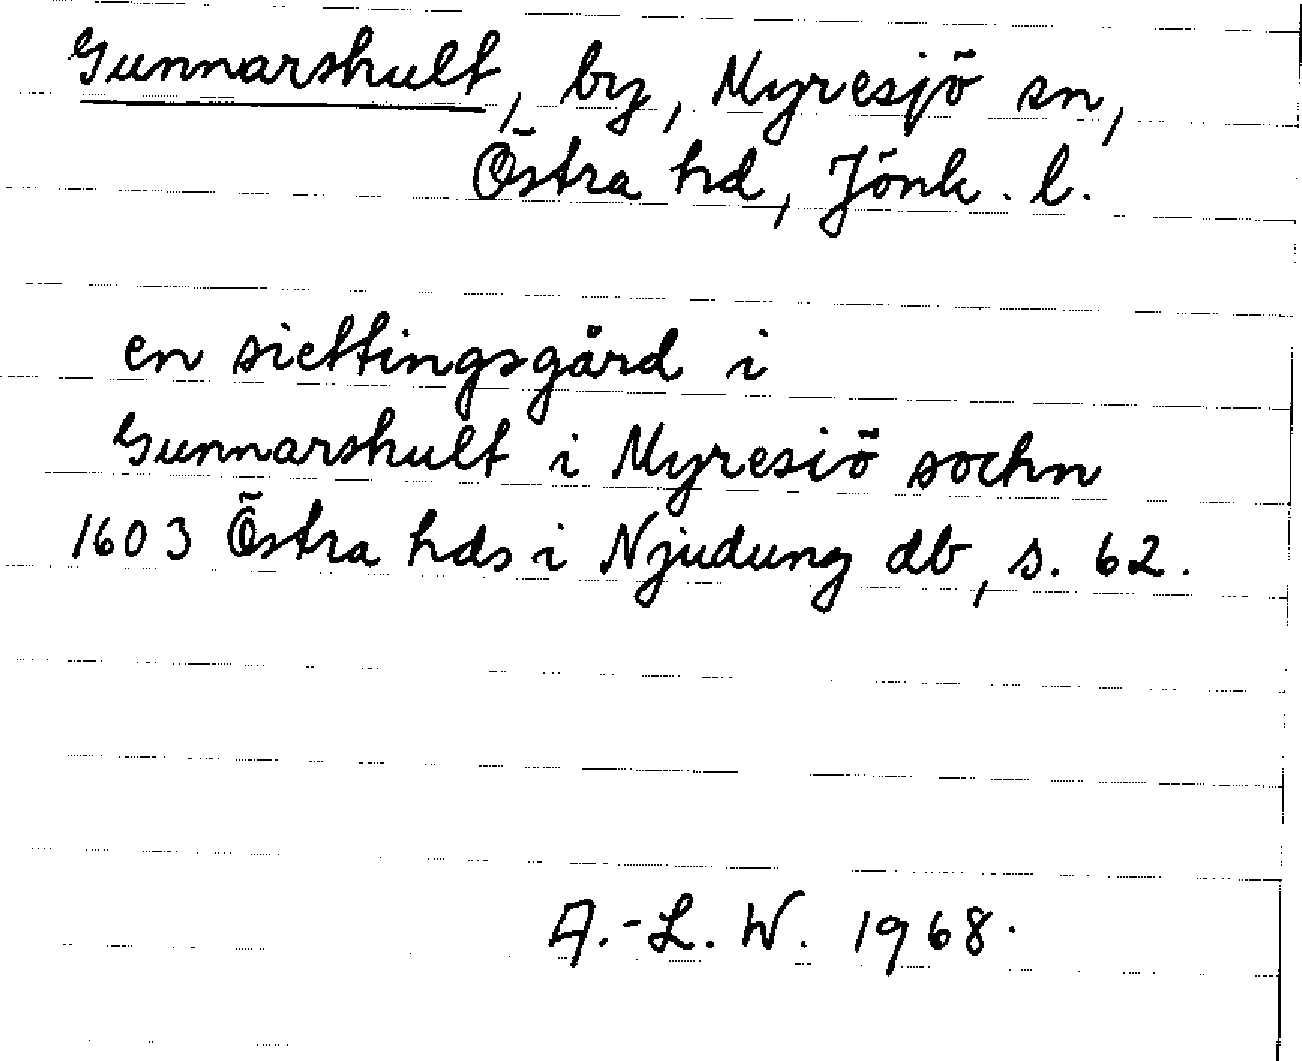 Gunnarskult, by, Myresjö sn,
Östra hd, Jönk. l.
en siettingsgård i
Gunnarskult i Myresiö sochn
1603 Östra hds i Njudung db, s. 62.
A.-L. W. 1968.